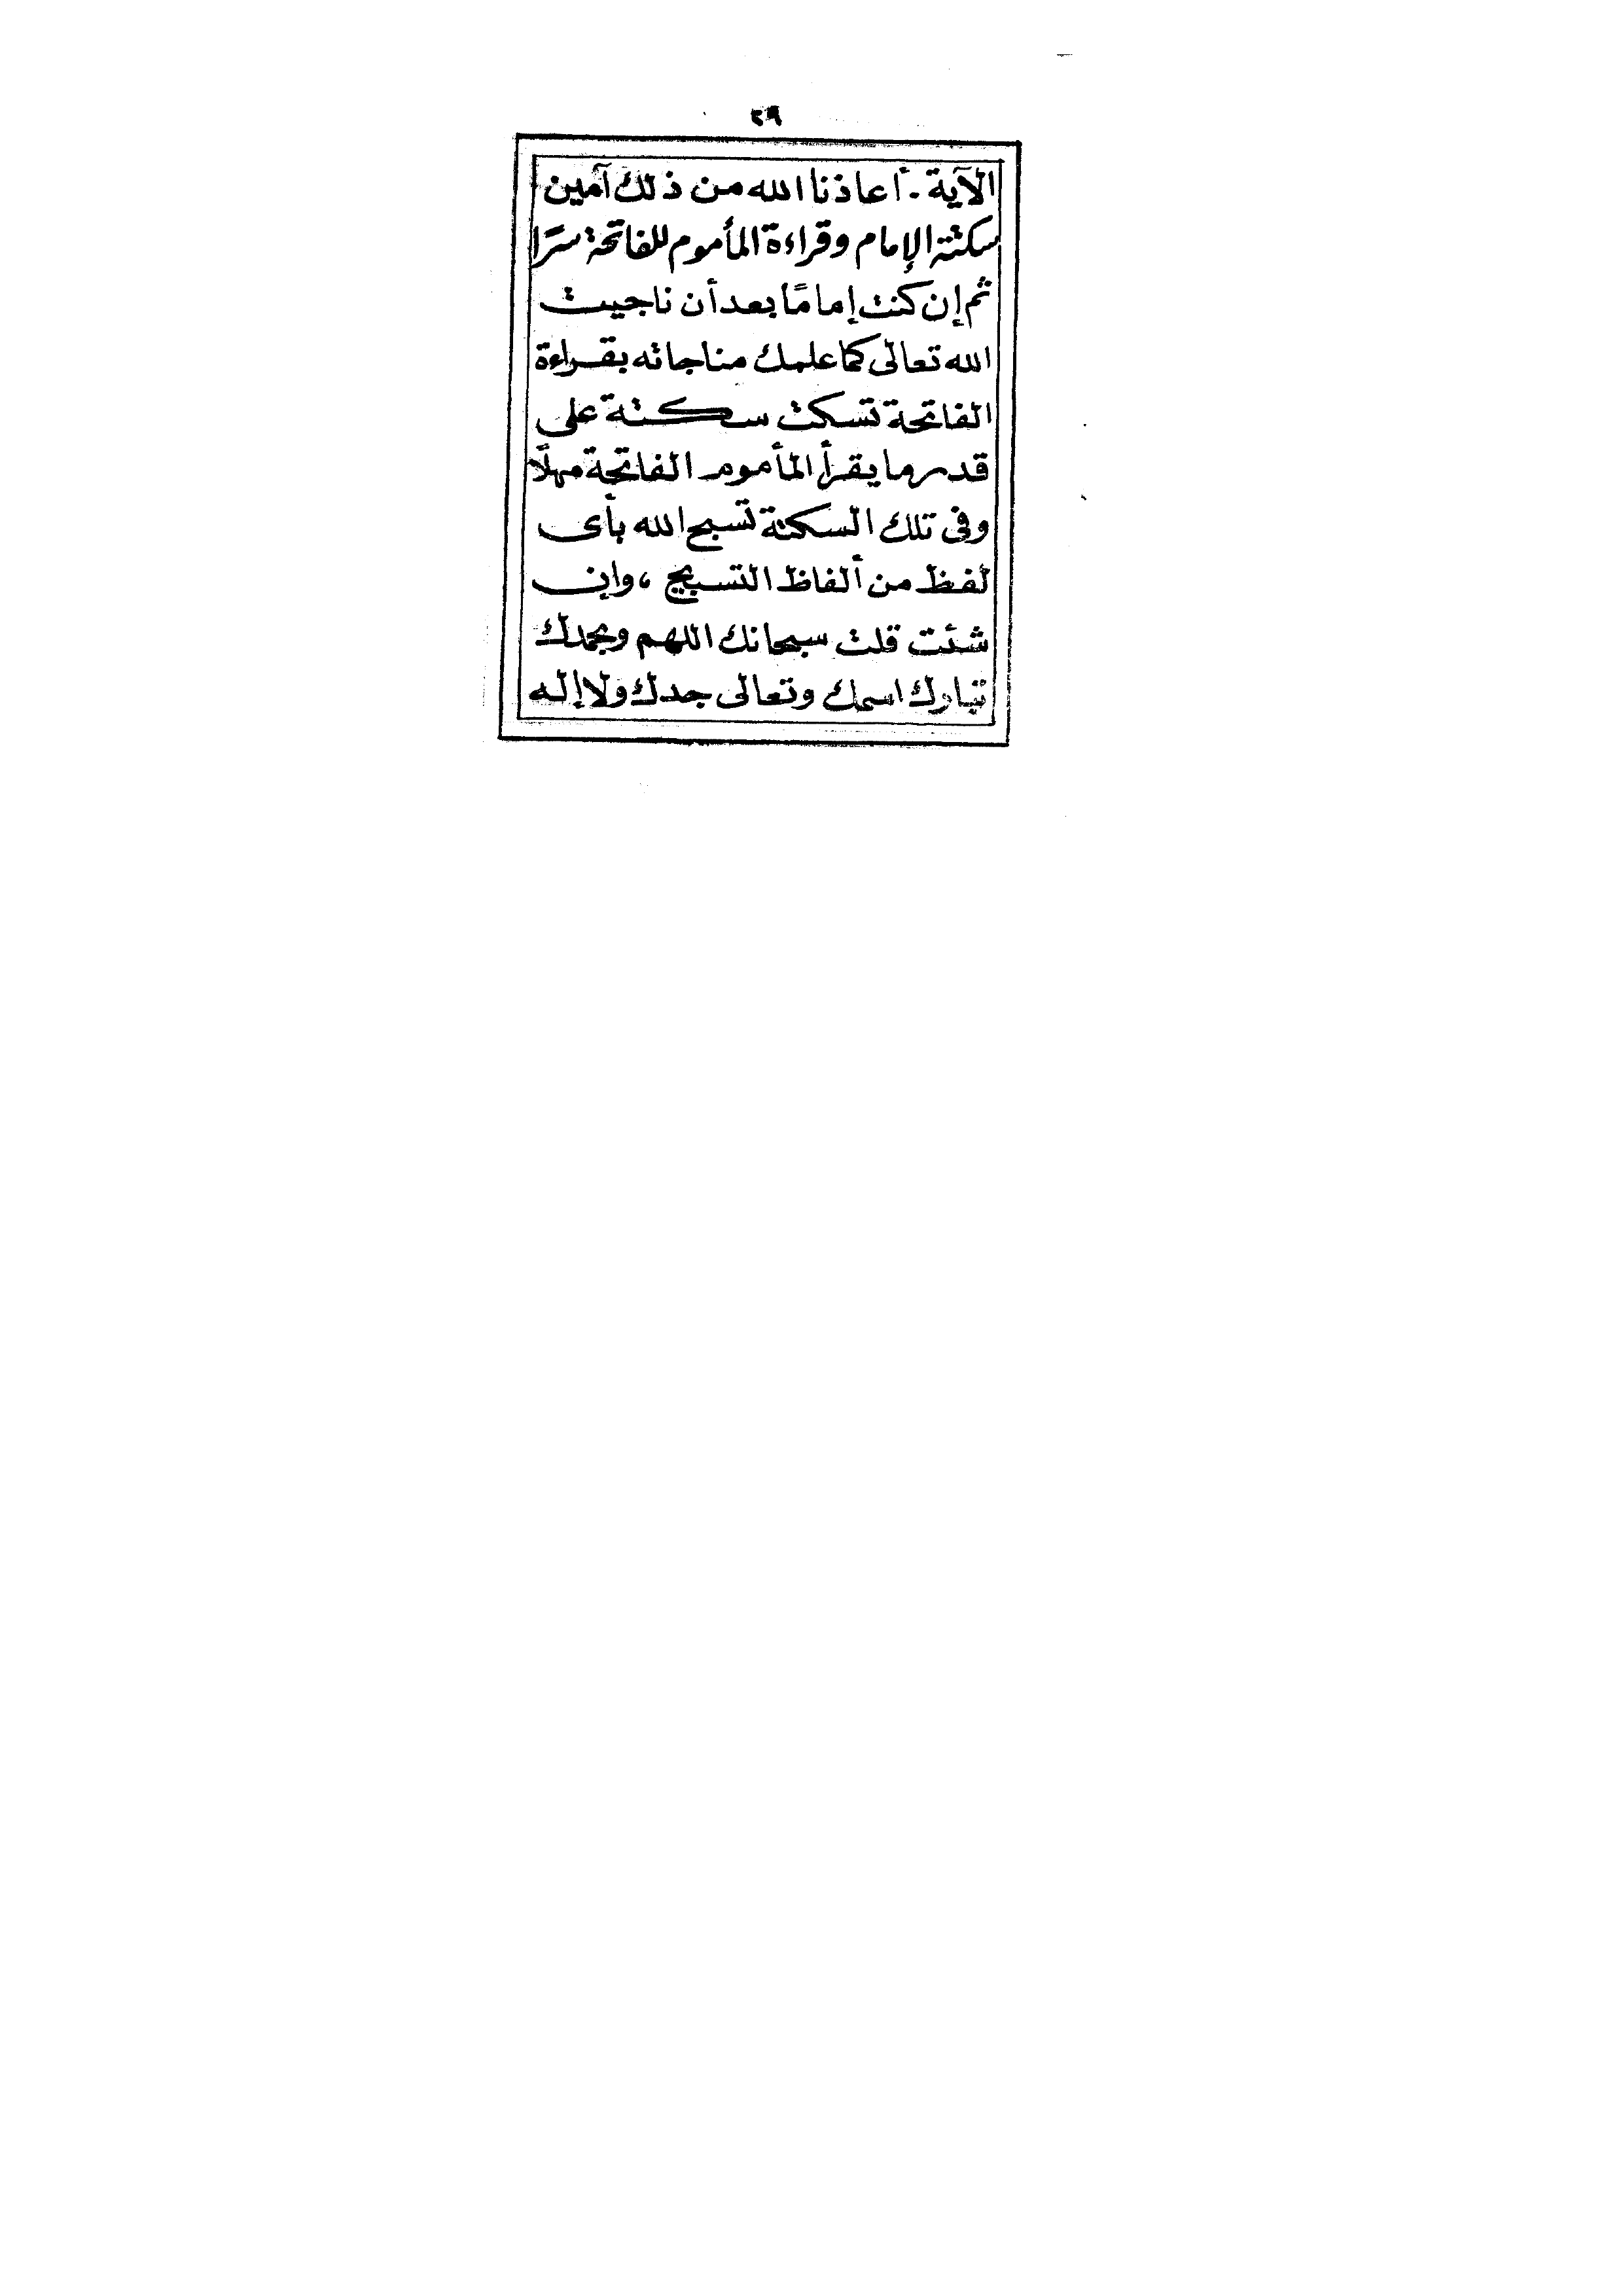 ٢٩
الآية . أعاذنا الله من ذلك آمين
سكتة الإمام وقراءة المأموم للفاتحة سرًا
ثم إن كنت إمامًا بعد أن ناجيت
الله تعالى كما علمك مناجاته بقراءة
الفاتحة تسكت سكتة على
قدر ما يقرأ المأموم الفاتحة مهلًا
وفى تلك السكتة تسبح الله بأى
لفظ من ألفاظ التسبيح ، وإن
شئت قلت سبحانك اللهم وبحمدك
تبارك اسمك وتعالى جدك ولا إله